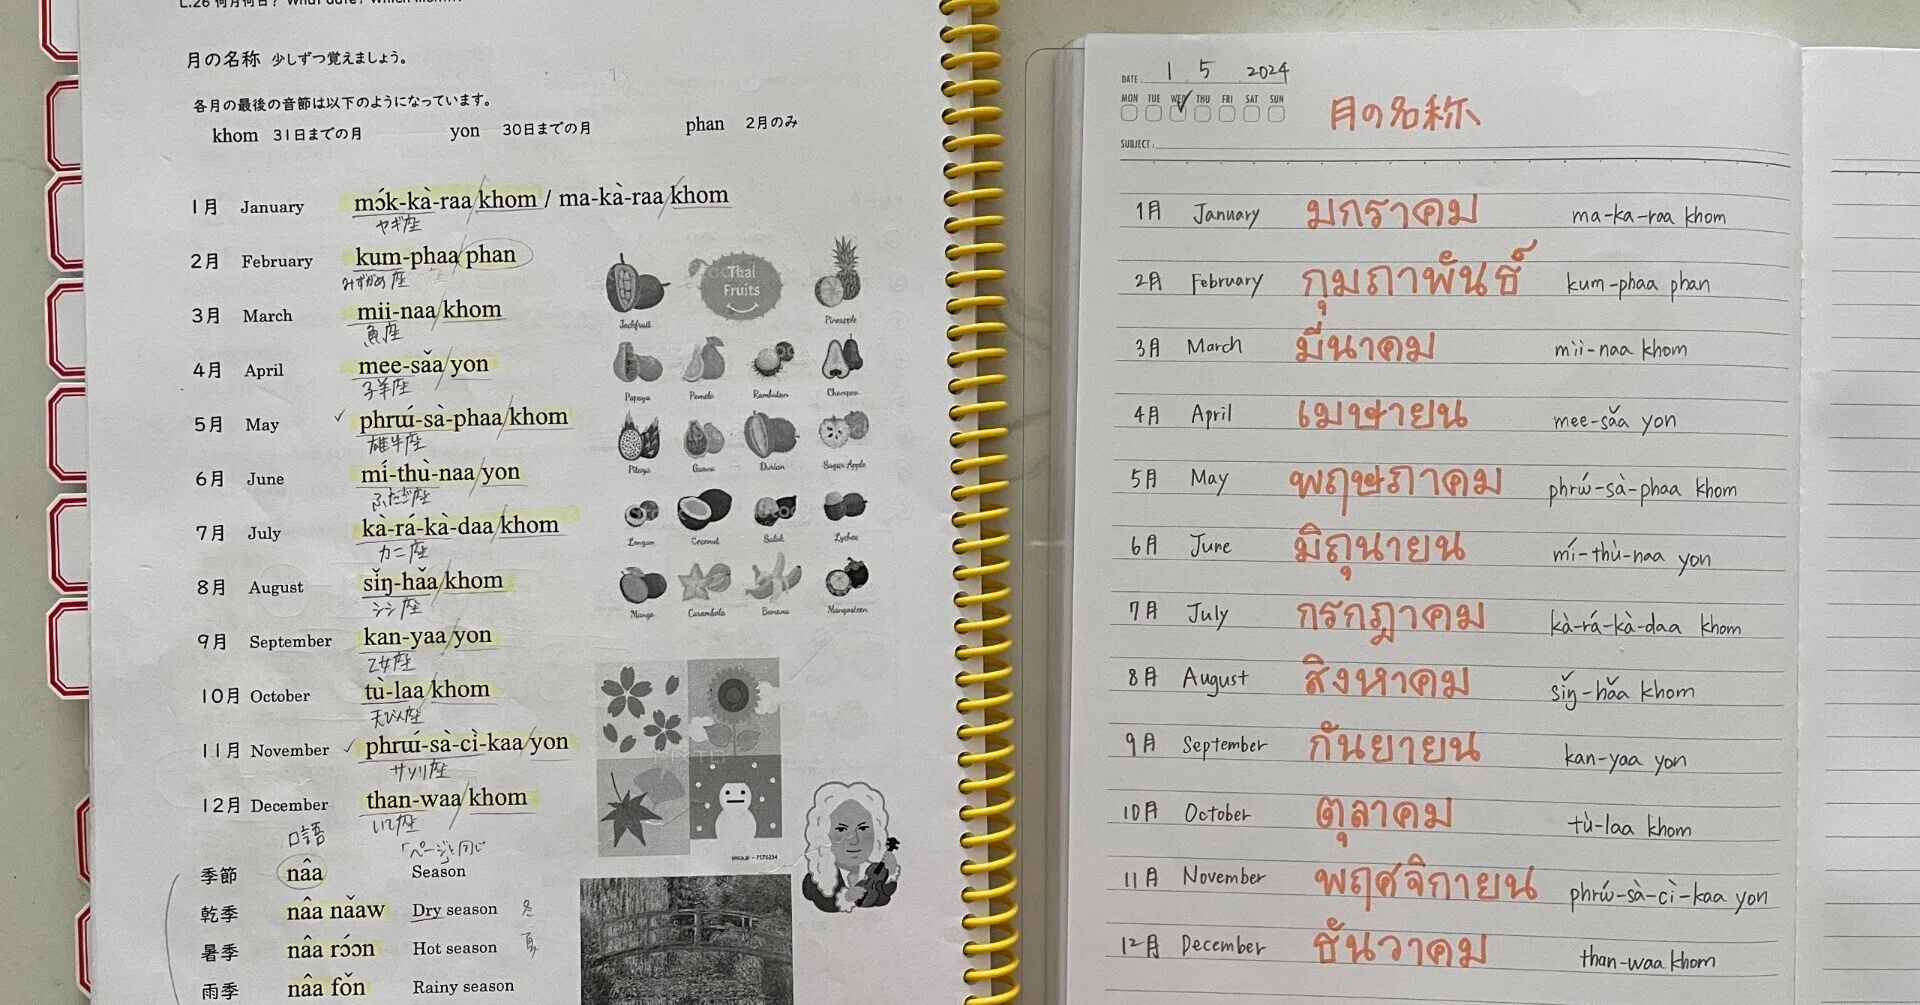 L.26 何月何日? What date? Which month?
月の名称 少しずつ覚えましょう。
各月の最後の音節は以下のようになっています。
khom 31日までの月 yon 30日までの月 phan 2月のみ
1月 January mɔ́k-kà-raa/khom / ma-kà-raa/khom
ヤギ座
2月 February kum-phaa/phan
みずがめ座
3月 March mii-naa/khom
魚座
4月 April mee-sǎa/yon
子羊座
✓
5月 May phrɯ́-sà-phaa/khom
雄牛座
6月 June mí-thù-naa/yon
ふたご座
7月 July kà-rá-kà-daa/khom
カニ座
8月 August sǐŋ-hǎa/khom
シシ座
9月 September kan-yaa/yon
乙女座
10月 October tù-laa/khom
天びん座
✓
11月 November phrɯ́-sà-cì-kaa/yon
サソリ座
12月 December than-waa/khom
いて座
口語
「ページ」と同じ
季節 nâa Season
乾季 nâa nǎaw Dry season 冬
暑季 nâa rɔ́ɔn Hot season 夏
雨季 nâa fǒn Rainy season
Thai
Fruits
Jackfruit
Pineapple
Papaya Pomelo Rambutan Chompoo
Pitaya Guava Durian Sugar Apple
Longan Coconut Salak Lychee
Mango Carambola Banana Mangosteen
pixta.jp - 7575234
DATE: 1 5 2024
MON TUE WED THU FRI SAT SUN
✓
月の名称
SUBJECT:
1月 January มกราคม ma-ka-raa khom
2月 February กุมภาพันธ์ kum-phaa phan
3月 March มีนาคม mii-naa khom
4月 April เมษายน mee-sǎa yon
5月 May พฤษภาคม phrɯ́-sà-phaa khom
6月 June มิถุนายน mí-thù-naa yon
7月 July กรกฎาคม kà-rá-kà-daa khom
8月 August สิงหาคม sǐŋ-hǎa khom
9月 September กันยายน kan-yaa yon
10月 October ตุลาคม tù-laa khom
11月 November พฤศจิกายน phrɯ́-sà-cì-kaa yon
12月 December ธันวาคม than-waa khom